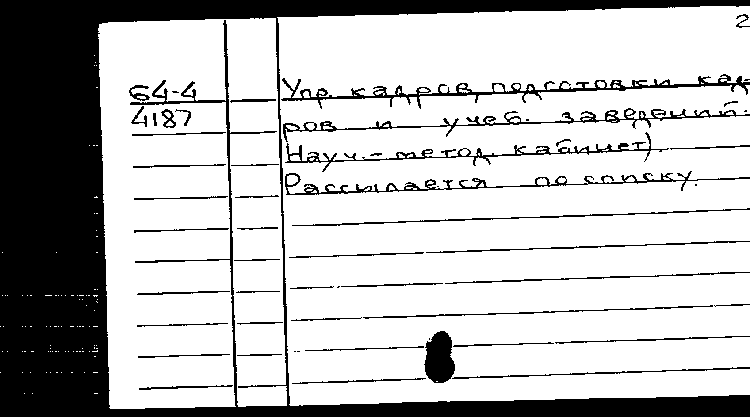 2
64-4 Упр. кадров, подготовки кад-
4187 ров и учеб. заведений.
Науч.-метод. кабинет).
Рассылается по списку.